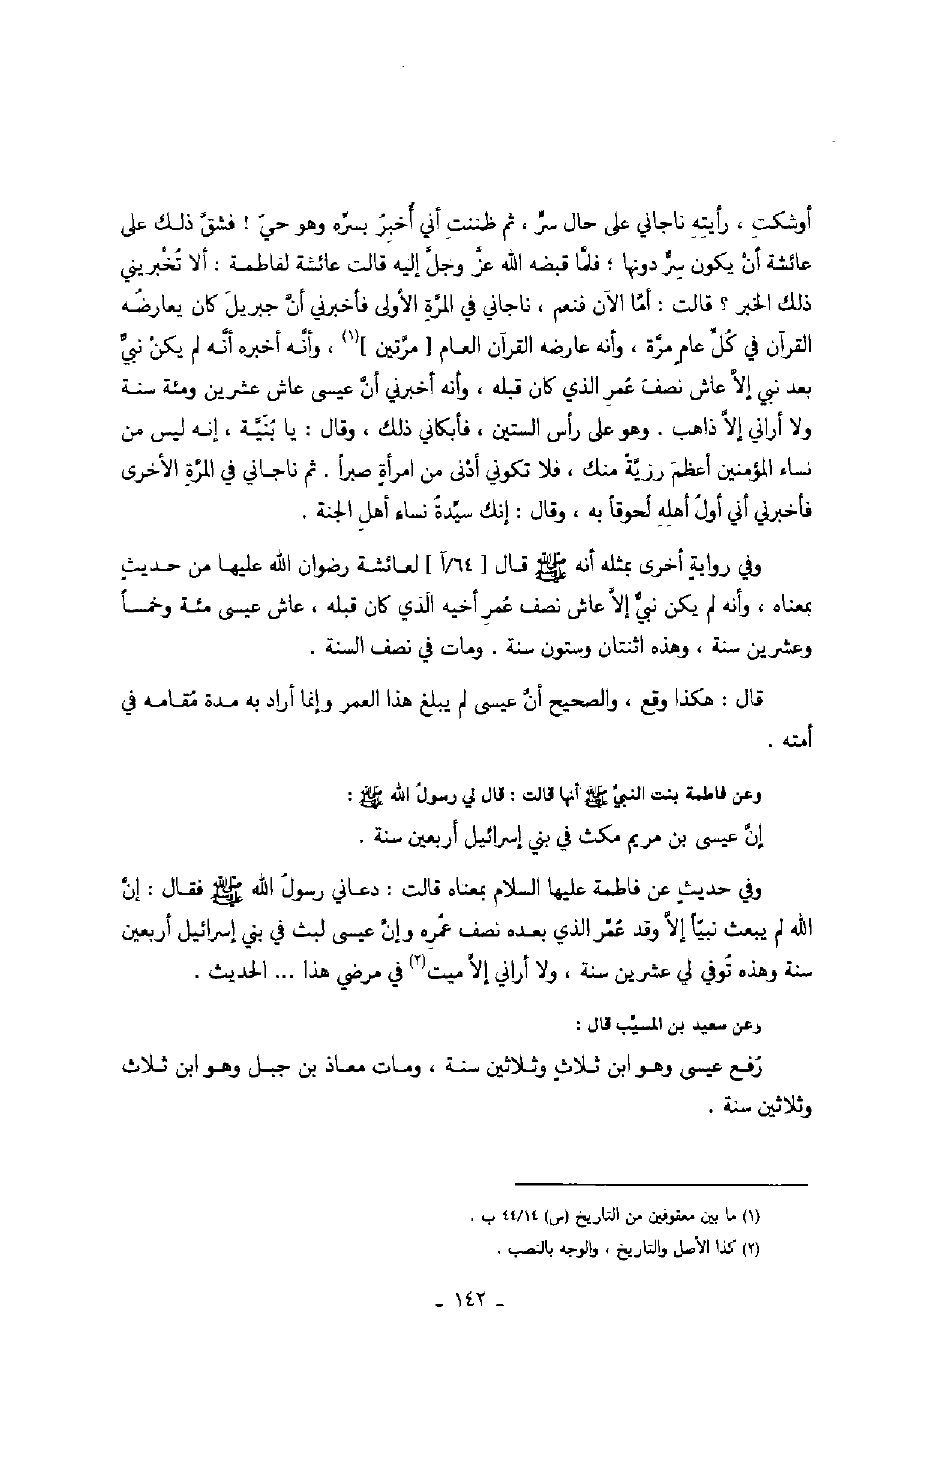 أوشكتِ ، رأيتِه ناجاني على حال سرٍّ ، ثم ظننتِ أني أُخبِرُ بسرِّه وهو حيّ ! فشقَّ ذلك على
عائشة أنْ يكون سِرٌّ دونها ؛ فلمَّا قبضه الله عزَّ وجلَّ إليه قالت عائشة لفاطمة : ألا تُخْبريني
ذلك الخبر ؟ قالت : أمّا الآن فنعم ، ناجاني في المرَّةِ الأولى فأخبرني أنَّ جبريلَ كان يعارضُه
القرآن في كُلِّ عامٍ مرَّة ، وأنه عارضه القرآن العام [ مرَّتين ](١) ، وأنَّه أخبره أنَّه لم يكنْ نبيٌّ
بعد نبي إلاَّ عاش نصف عُمرِ الذي كان قبله ، وأنه أخبرني أنَّ عيسى عاش عشرين ومئة سنة
ولا أراني إلاَّ ذاهب . وهو على رأس الستين ، فأبكاني ذلك ، وقال : يا بُنَيَّة ، إنه ليس من
نساء المؤمنين أعظمَ رزيَّةً منك ، فلا تكوني أدْنى من امرأةٍ صبراً . ثم ناجاني في المرَّةِ الأخرى
فأخبرني أني أولُ أهلِه لُحوقاً به ، وقال : إنك سيِّدةُ نساء أهلِ الجنة .
وفي روايةٍ أخرى بمثله أنه ﷺ قال [ ٦٤/آ ] لعائشة رضوان الله عليها من حديثٍ
بمعناه ، وأنه لم يكن نبيٌّ إلاَّ عاش نصف عُمرِ أخيه الَّذي كان قبله ، عاش عيسى مئة وخمساً
وعشرين سنة ، وهذه اثنتان وستون سنة . ومات في نصف السنة .
قال : هكذا وقع ، والصحيح أنَّ عيسى لم يبلغ هذا العمر وإنما أراد به مدة مُقامه في
أمته .
وعن فاطمة بنت النبيِّ ﷺ أنها قالت : قال لي رسولُ الله ﷺ :
إنَّ عيسى بن مريم مكث في بني إسرائيل أربعين سنة .
وفي حديثٍ عن فاطمة عليها السلام بمعناه قالت : دعاني رسولُ الله ﷺ فقال : إنَّ
الله لم يبعث نبيّاً إلاَّ وقد عُمِّر الذي بعده نصف عمُره وإنَّ عيسى لبث في بني إسرائيل أربعين
سنة وهذه تُوفي لي عشرين سنة ، ولا أراني إلاَّ ميت(٢) في مرضي هذا ... الحديث .
وعن سعيد بن المسيِّب قال :
رُفع عيسى وهو ابن ثلاثٍ وثلاثين سنة ، ومات معاذ بن جبل وهو ابن ثلاث
وثلاثين سنة .
(١) ما بين معقوفين من التاريخ (س) ٤٤/١٤ ب .
(٢) كذا الأصل والتاريخ ، والوجه بالنصب .
ـ ١٤٢ ـ